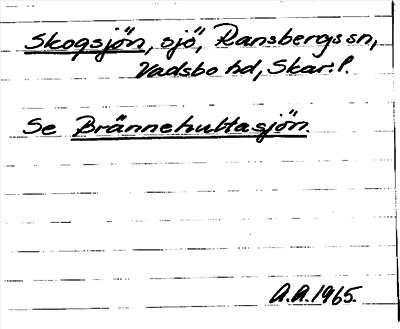 Skogsjön, sjö, Ransbergs sn,
Vadsbo hd, Skar. l.
Se Brännehultasjön.
A.A. 1965.